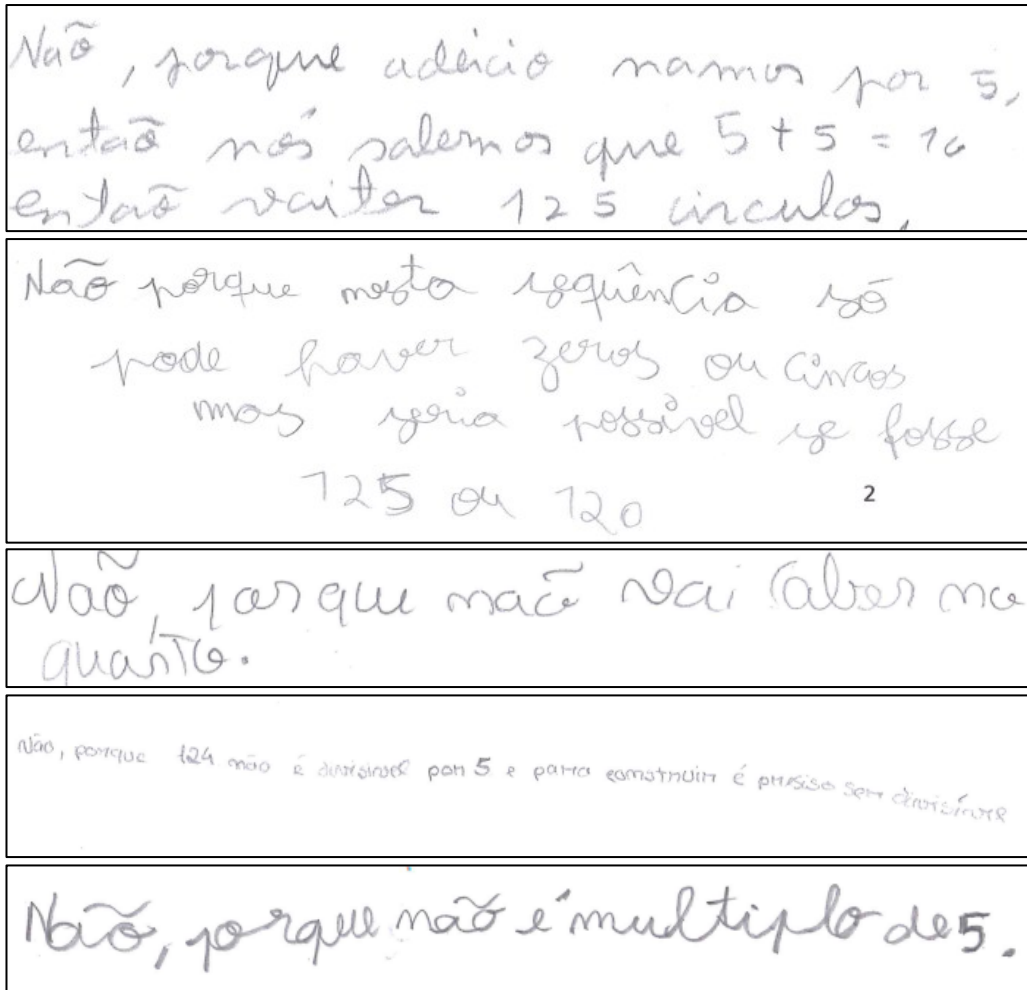 Não, porque adicionamos por 5,
então nós sabemos que 5 + 5 = 10
então vai ter 125 circulos,
Não porque nesta sequência só
pode haver zeros ou cincos
mas seria possível se fosse
125 ou 120
2
Não, porque não vai caber no
quarto.
Não, porque 124 não é divisível por 5 e para construir é presiso ser divisível
Não, porque não é multiplo de 5.